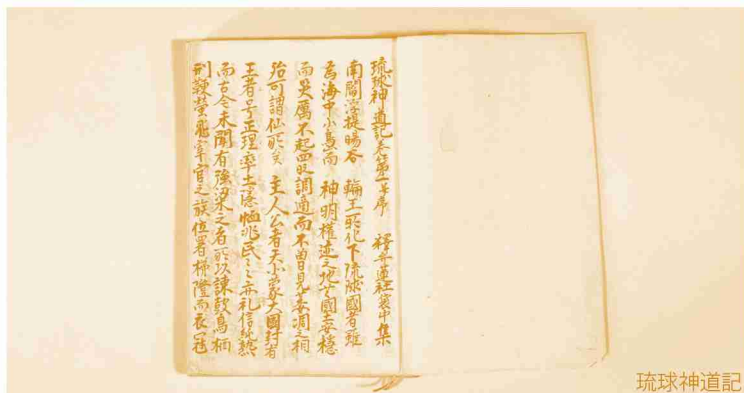 琉球神道記卷第一并序 釋弁蓮社袋中集
南閻浮提暘谷 輪王所化下琉球國者雖
為海中小島而 神明權迹之地也國土安穩
而災厲不起四時調適而不曽見哀凋之相
殆可謂仙所矣 主人公者天小蒙大國封省
王者号正理率土隱恤兆民々亦礼信統然
而古今未聞有強梁之者所以諫鼓鳥栖
刑鞭螢飛宰官之族位署梯隥而衣冠
琉球神道記